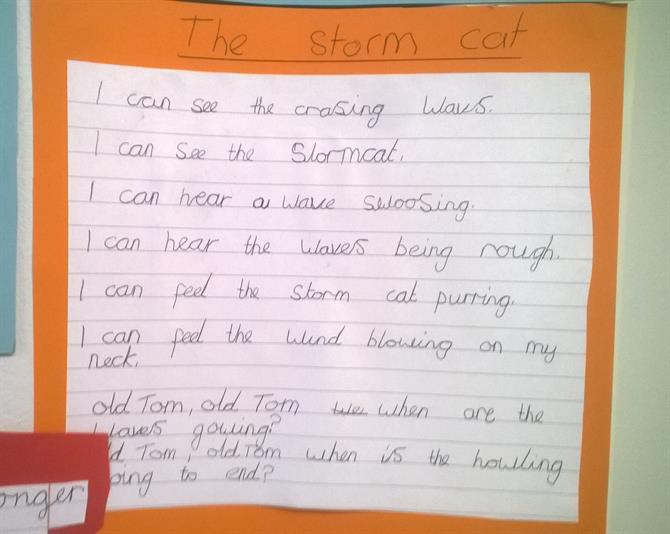 The storm cat
I can see the crasing wavs.
I can see the Stormcat.
I can hear a wave swoosing.
I can hear the waves being rough.
I can feel the storm cat purring.
I can feel the wind blowing on my
neck.
old Tom, old Tom when are the
waves gowing?
d Tom, old Tom when is the howling
oing to end?
onger